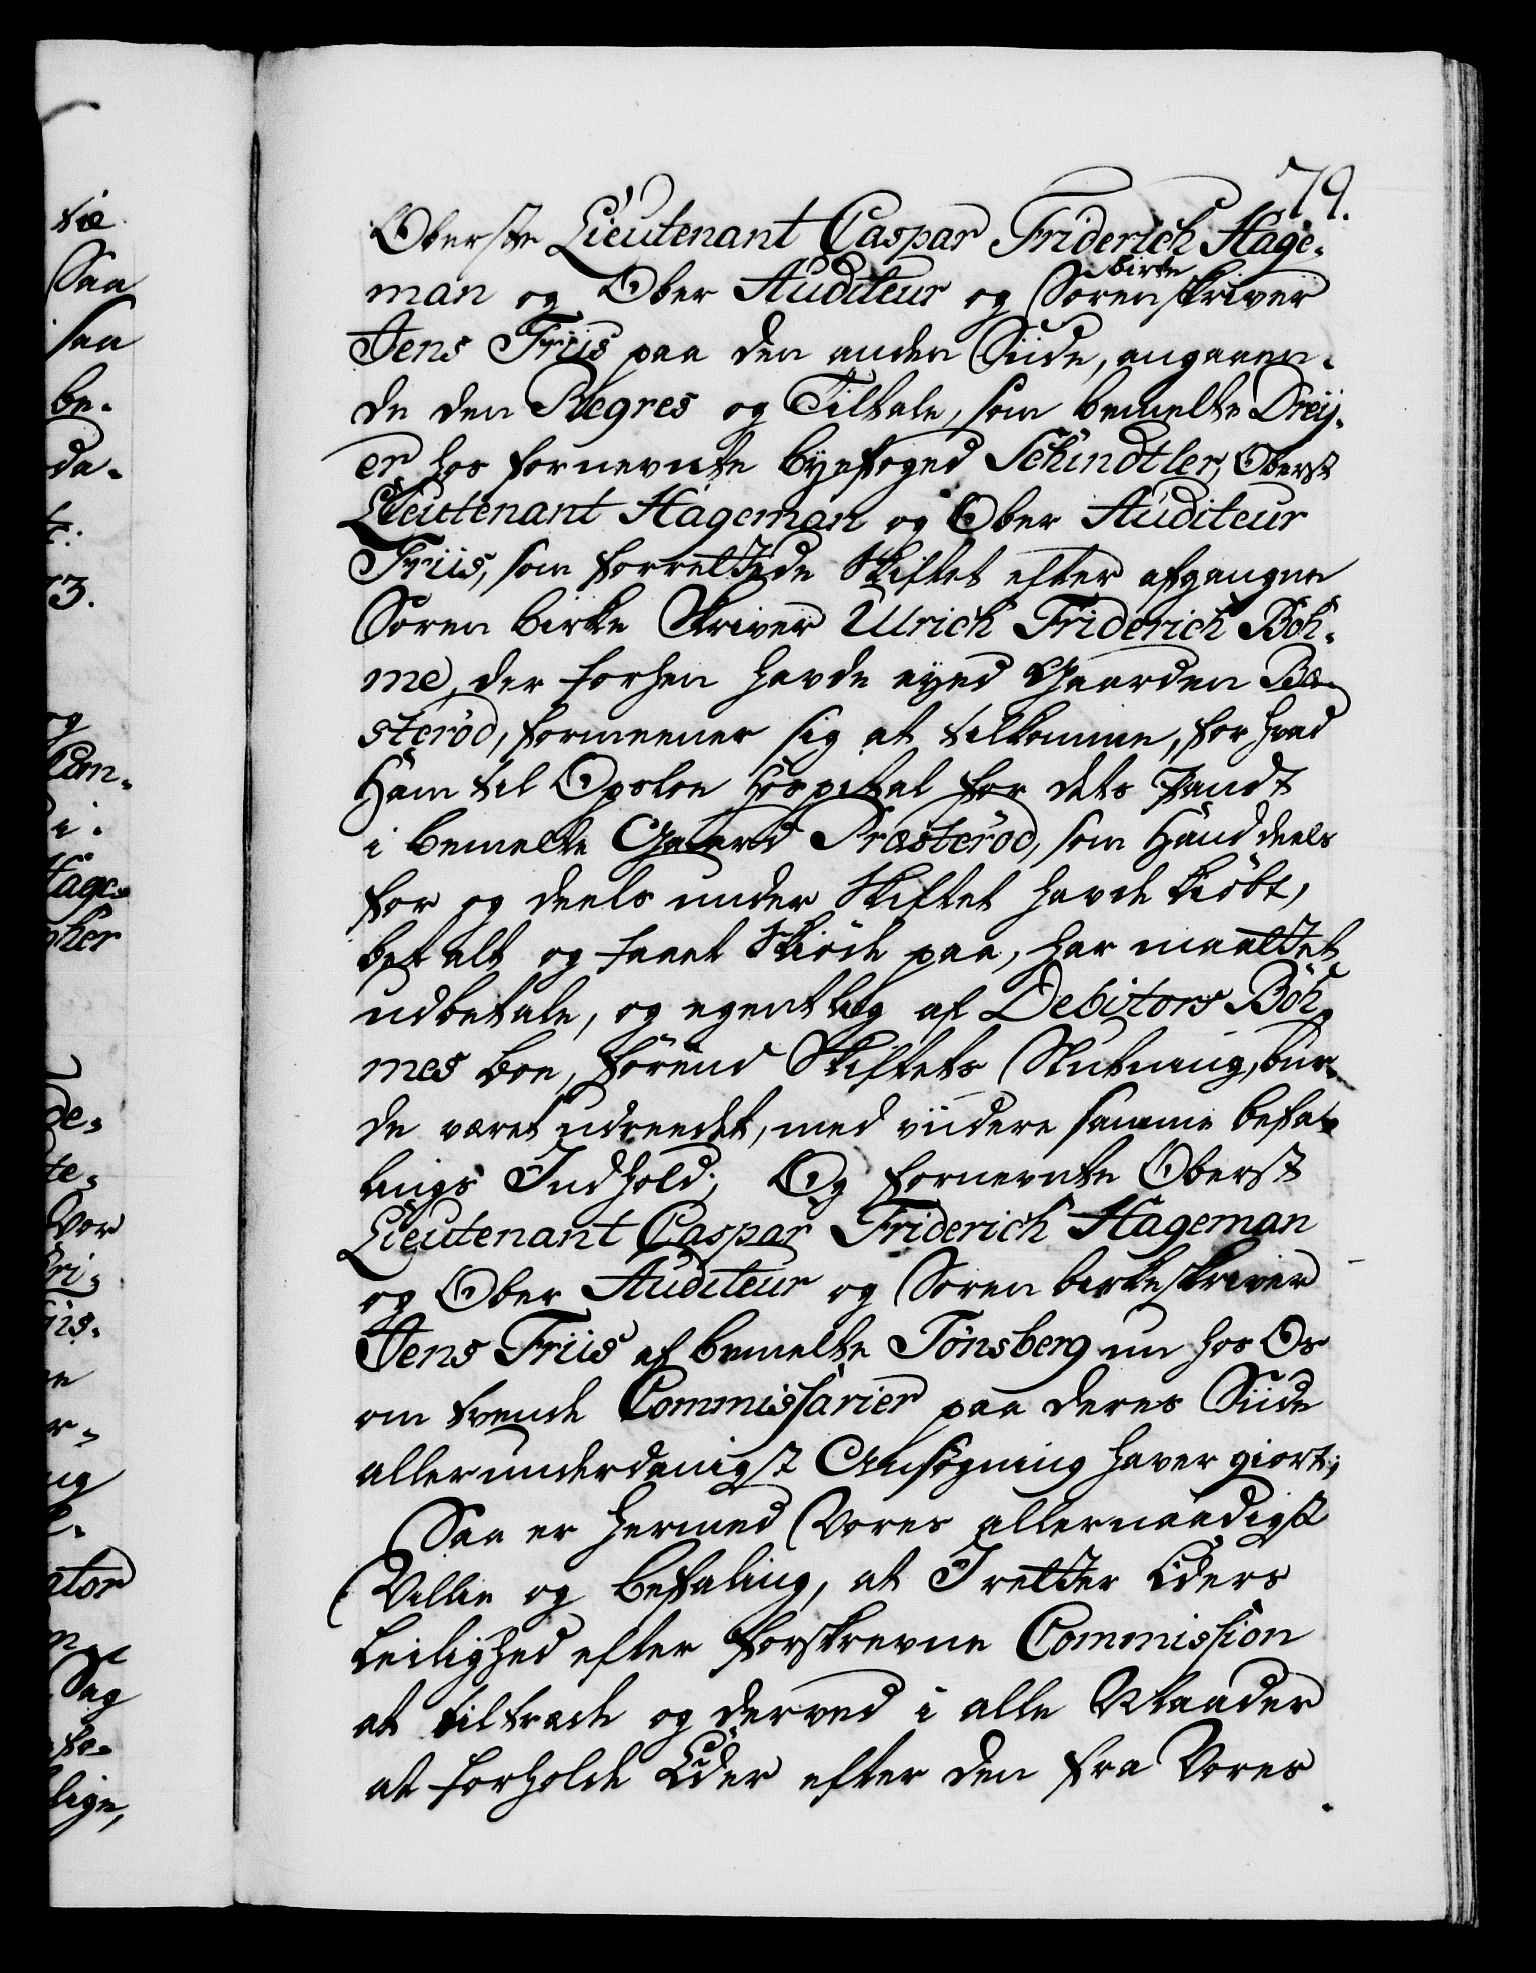 79.
Oberste Lieutenant Caspar Friderich Hage-
man og Ober Auditeur og Soren birke skriver
Jens Friis paa den anden Siide, angaaen-
de den Regres og Tiltale, som bemelte Dreÿ-
er hos fornevnte byefoged Schindtler, Oberst
Lieutenant Hageman og Ober Auditeur
Friis, som forrettede Skiftet efter afgangne
Soren birke Skriver Ulrich Friderich Böh-
me, der forhen havde eyed Gaarden Bæ-
steröd, formeener sig at tilkomme, for hvad
Ham til Opsloe Hospital for dets Pandt
i bemelte Gaard Præsteröd, som Hand deels
for og deels under Skiftet havde kiöbt,
betalt og faaet Skiöde paa, har maattet
udbetale, og egentlig af Debitors Böh-
mes boe, förend Skiftets Slutning, bur-
de været udreedet, med viidere samme befa-
lings Indhold; Og fornevnte Oberst
Lieutenant Caspar Friderich Hageman
og Ober Auditeur og Soren birkeskriver
Jens Friis af bemelte Tönsberg nu hos Os
om tvende Commissarier paa deres Siide
allerunderdanigst Ansögning haver giort;
Saa er hermed Vores allernaadigst
Villie og befaling, at I retter Eders
Leilighed efter forskrevne Commission
at tiltræde og derved i alle Maader
at forholde Eder efter den fra Vores
tie
Saa
saa
be-
da-
73.
og
Hage-
cher
de-
te-
Vor
Fri-
iis-
ator
Sag
lige,